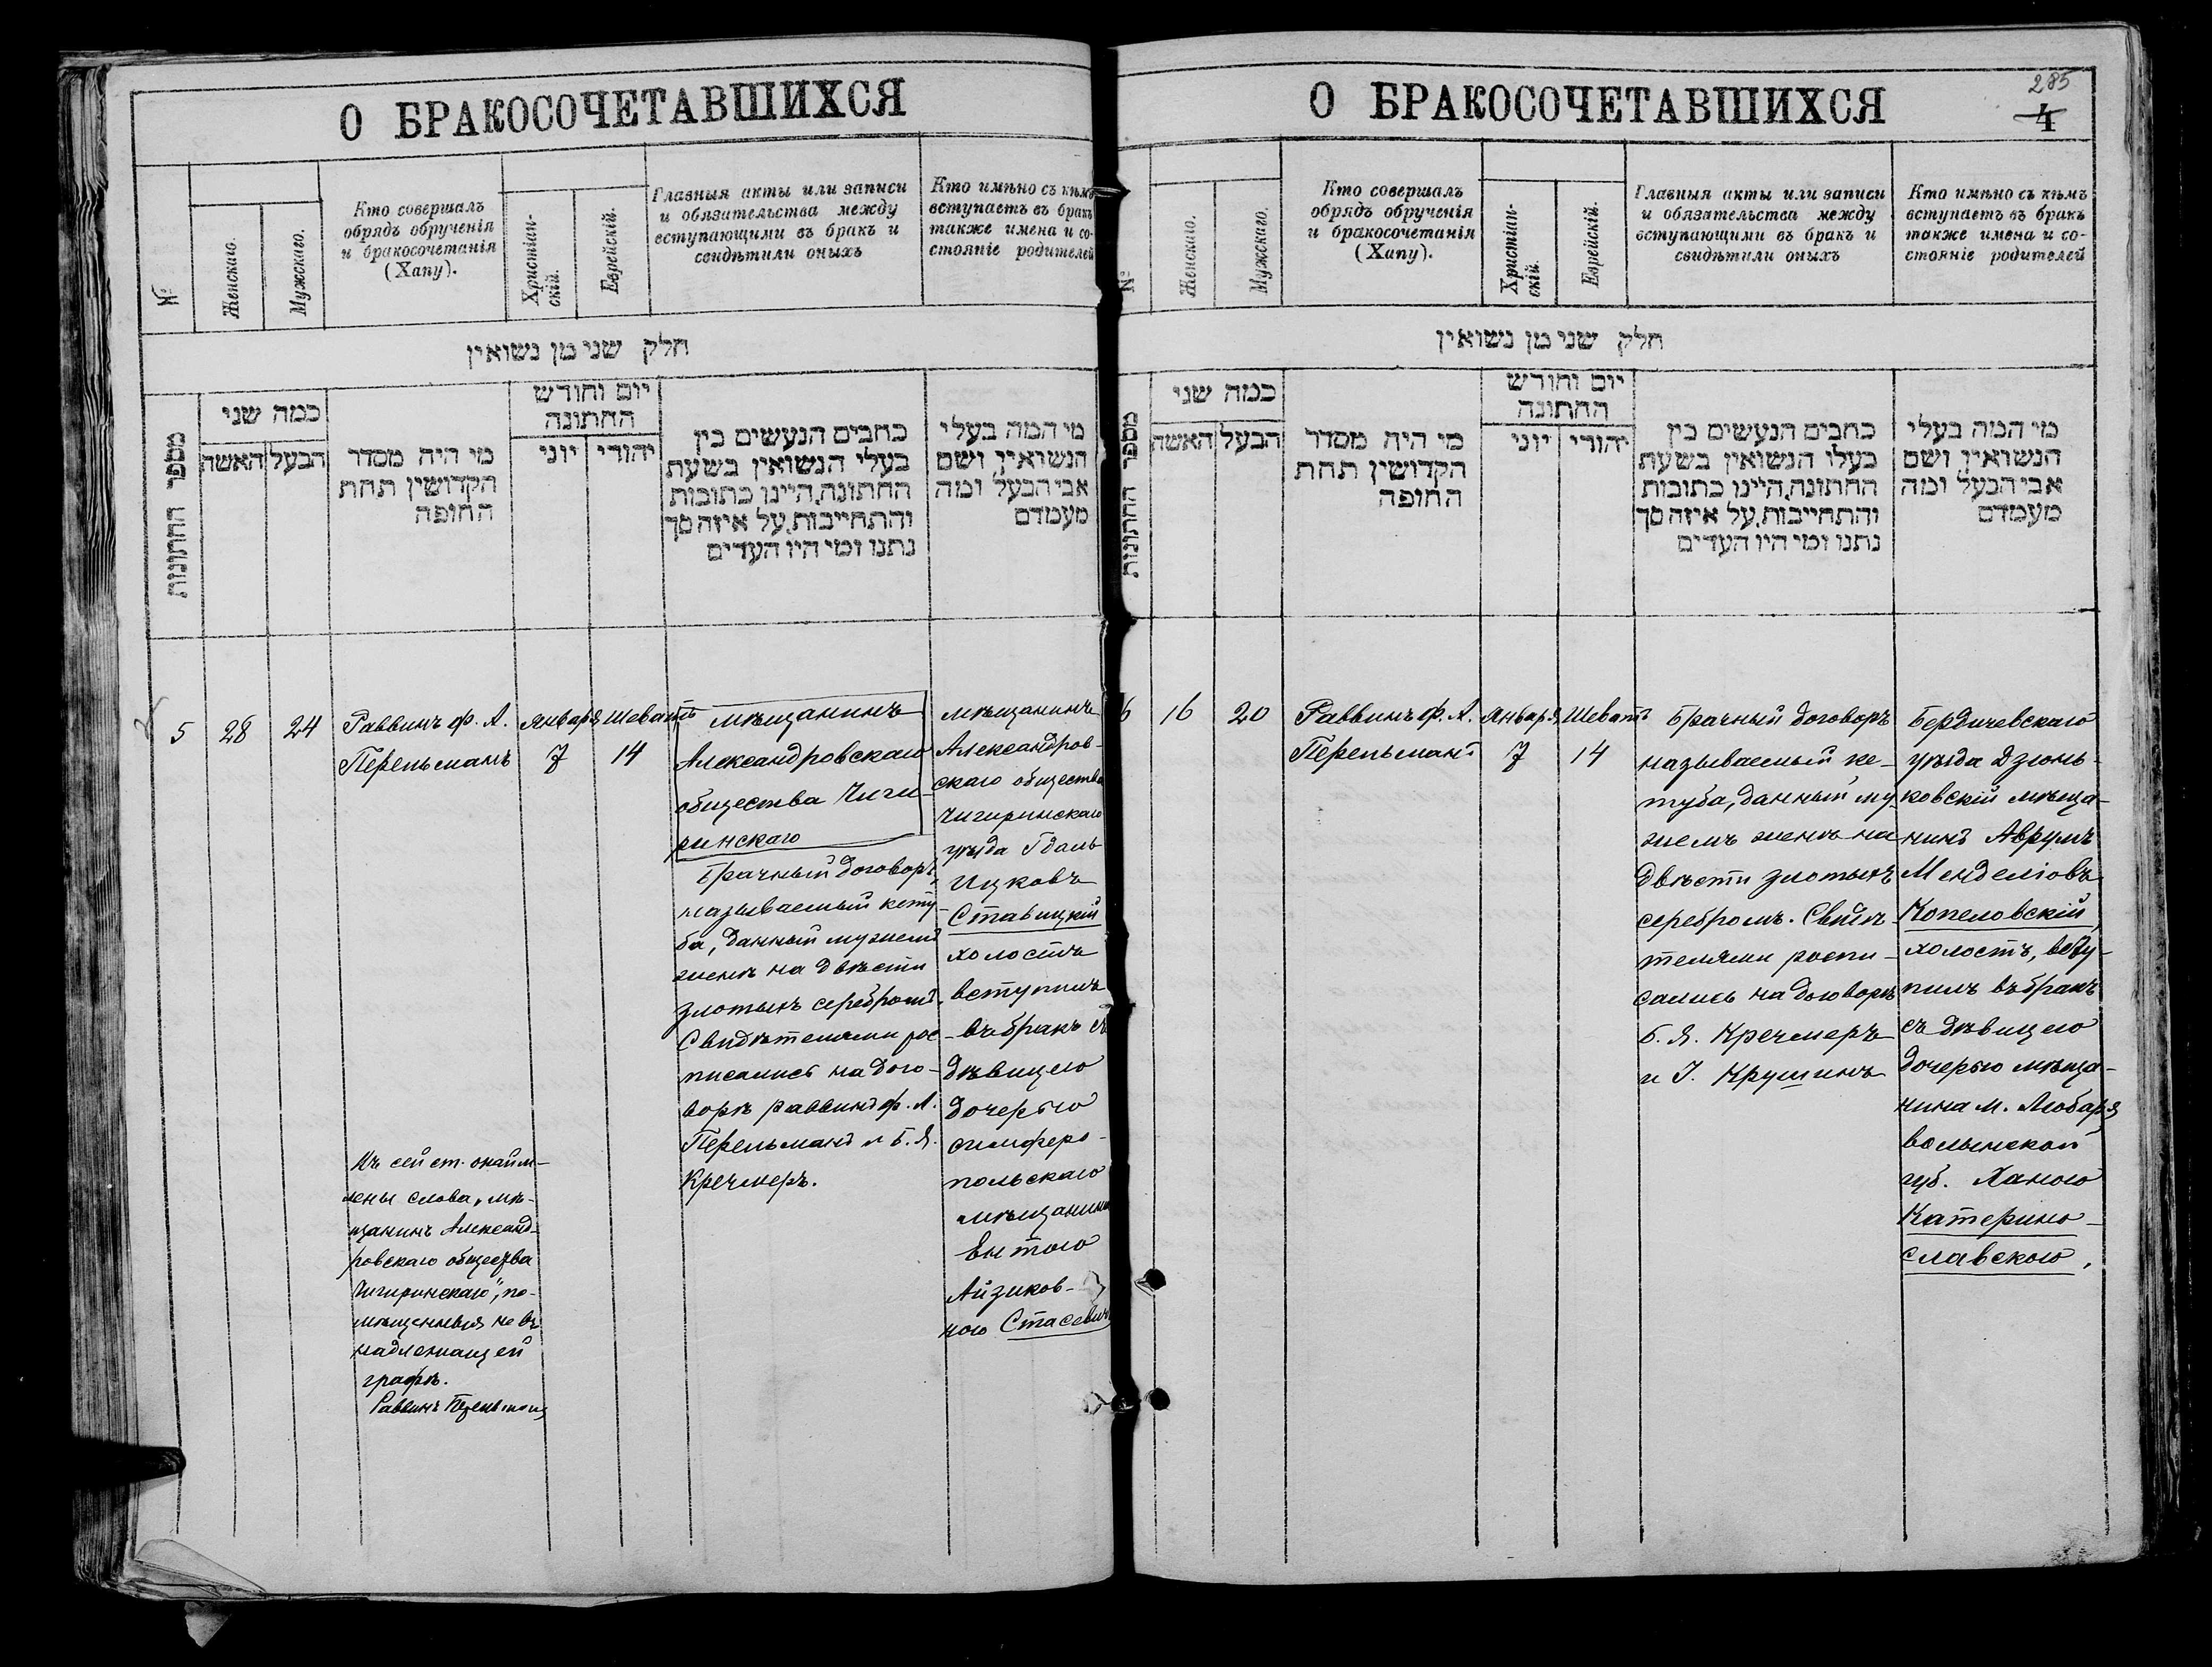 О БРАКОСОЧЕТАВШИХСЯ
№
Женскаго.
Мужскаго.
Кто совершалъ
обрядъ обрученія
и бракосочетанія
(Хапу).
Христіан-
скій.
Еврейскій.
Главныя акты или записи
и обязательства между
вступающими въ бракъ и
свидѣтили оныхъ
Кто имѣно съ кѣмъ
вступаетъ въ бракъ
также имена и со-
стояніе родителей
חלק שני מן נשואין
מספר החתונות
כמה שני
האשה
הבעל
מי היה מסדר
הקדושין תחת
החופה
יום וחודש
החתונה
יוני
יהודי
כתבים הנעשים בין
בעלי הנשואין בשעת
החתונה, היינו כתובות
והתחייבות, על איזה סך
נתנו ומי היו העדים
מי המה בעלי
הנשואין, ושם
אבי הבעל ומה
מעמדם
5
28
24
Раввинъ ф. А.
Перельманъ
Января
7
Шеватъ
14
мѣщанинъ
Александровскаго
общества Чиги-
ринскаго
Брачный договоръ,
называемый кету-
ба, данный мужемъ
женѣ на двѣсти
злотыхъ серебромъ.
Свидѣтелями рос-
писались на дого-
ворѣ раввинъ ф. А.
Перельманъ и Б. Я.
Кречмеръ.
мѣщанинъ
Александров-
скаго общества
Чигиринскаго
уѣзда Гдаль
Ицковъ
Ставицкій
холостъ
вступилъ
въ бракъ съ
дѣвицею
дочерью
симферо-
польскаго
мѣщанина
Ентою
Айзиков-
ною Стасевичъ
Къ сей ст. окайм-
лены слова „мѣ-
щанинъ Александ-
ровскаго общества
Чигиринскаго", по-
мѣщенныя не въ
надлежащей
графѣ.
Раввинъ Перельманъ
О БРАКОСОЧЕТАВШИХСЯ
285
4
№
Женскаго.
Мужскаго.
Кто совершалъ
обрядъ обрученія
и бракосочетанія
(Хапу).
Христіан-
скій.
Еврейскій.
Главныя акты или записи
и обязательства между
вступающими въ бракъ и
свидѣтили оныхъ
Кто имѣно съ кѣмъ
вступаетъ въ бракъ
также имена и со-
стояніе родителей
חלק שני מן נשואין
מספר החתונות
כמה שני
האשה
הבעל
מי היה מסדר
הקדושין תחת
החופה
יום וחודש
החתונה
יוני
יהודי
כתבים הנעשים בין
בעלי הנשואין בשעת
החתונה, היינו כתובות
והתחייבות, על איזה סך
נתנו ומי היו העדים
מי המה בעלי
הנשואין, ושם
אבי הבעל ומה
מעמדם
6
16
20
Раввинъ ф. А.
Перельманъ
Января
7
Шеватъ
14
Брачный договоръ
называемый ке-
туба, данный му-
жемъ женѣ на
двѣсти злотыхъ
серебромъ. Свидѣ-
телями роспи-
сались на договорѣ
Б. Я. Кречмеръ
и І. Крушинъ
Бердичевскаго
уѣзда Дзюнь-
ковскій мѣща-
нинъ Аврумъ
Менделіовъ
Копеловскій,
холостъ, всту-
пилъ въ бракъ
съ дѣвицею
дочерью мѣща-
нина м. Любаря
волынской
губ. Ханою
Катерино-
славскою.